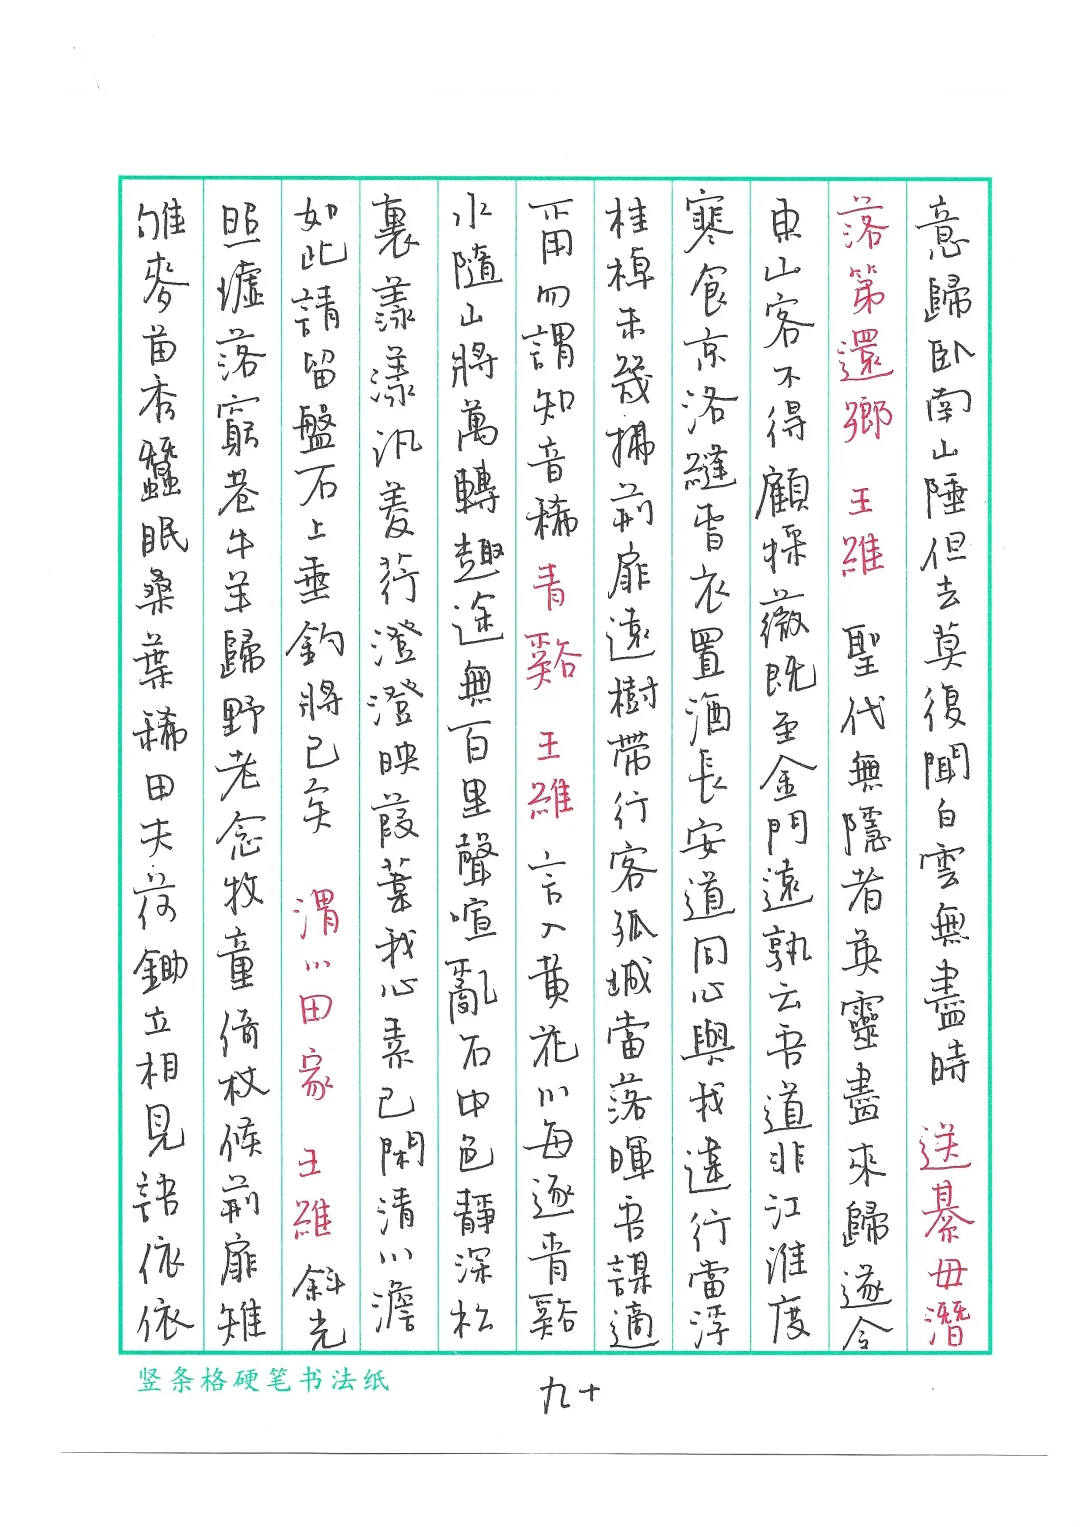 意歸臥南山陲但去莫復聞白雲無盡時 送綦毋潛
落第還鄉 王維 聖代無隱者英靈盡來歸遂令
東山客不得顧採薇既至金門遠孰云吾道非江淮度
寒食京洛縫春衣置酒長安道同心與我違行當浮
桂棹未幾拂荊扉遠樹帶行客孤城當落暉吾謀適
不用勿謂知音稀 青谿 王維 言入黃花川每逐青谿
水隨山將萬轉趣途無百里聲喧亂石中色靜深松
裏漾漾汎菱荇澄澄映葭葦我心素已閑清川澹
如此請留盤石上垂釣將已矣 渭川田家 王維 斜光
照墟落窮巷牛羊歸野老念牧童倚杖候荊扉雉
雊麥苗秀蠶眠桑葉稀田夫荷鋤立相見語依依
竖条格硬笔书法纸
九十